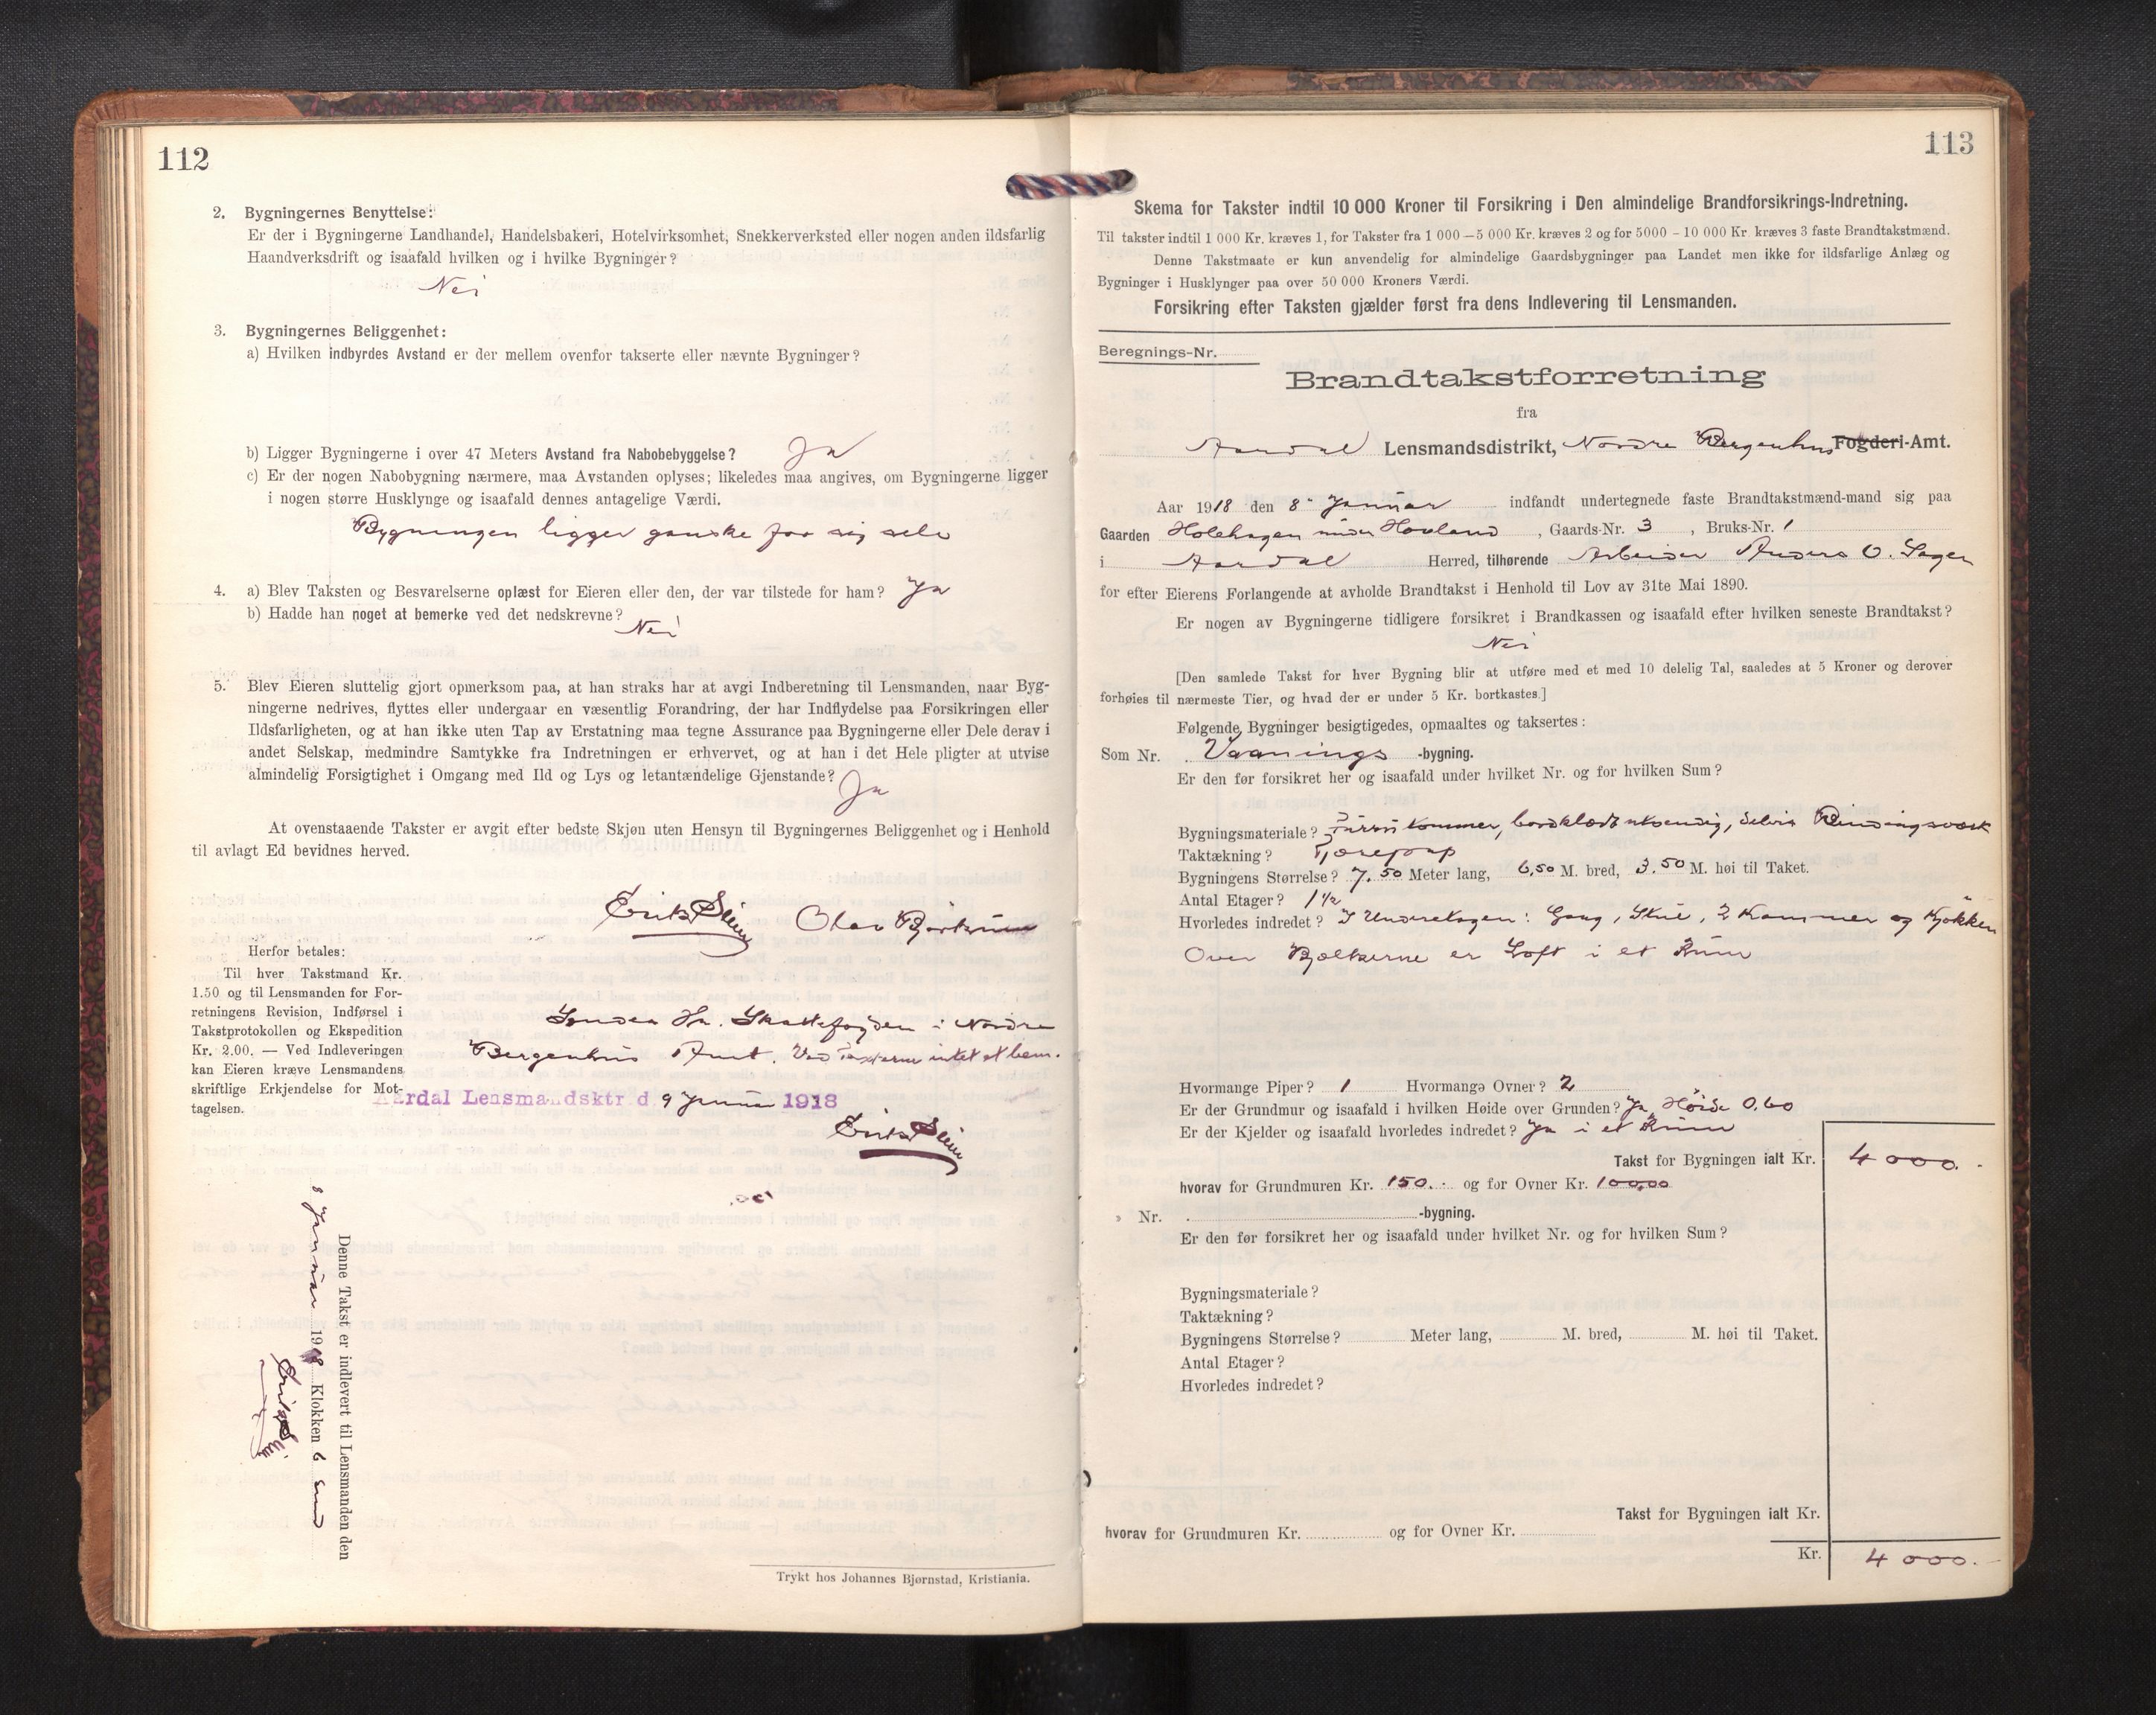 112
2. Bygningernes Benyttelse:
Er der i Bygningerne Landhandel, Handelsbakeri, Hotelvirksomhet, Snekkerverksted eller nogen anden ildsfarlig
Haandverksdrift og isaafald hvilken og i hvilke Bygninger?
Nei
3. Bygningernes Beliggenhet:
a) Hvilken indbyrdes Avstand er der mellem ovenfor takserte eller nævnte Bygninger?
b) Ligger Bygningerne i over 47 Meters Avstand fra Nabobebyggelse? Ja
c) Er der nogen Nabobygning nærmere, maa Avstanden oplyses; likeledes maa angives, om Bygningerne ligger
i nogen større Husklynge og isaafald dennes antagelige Værdi.
Bygningen ligger ganske for sig selv
4. a) Blev Taksten og Besvarelserne oplæst for Eieren eller den, der var tilstede for ham? Ja
b) Hadde han noget at bemerke ved det nedskrevne?
Nei
5. Blev Eieren sluttelig gjort opmerksom paa, at han straks har at avgi Indberetning til Lensmanden, naar Byg-
ningerne nedrives, flyttes eller undergaar en væsentlig Forandring, der har Indflydelse paa Forsikringen eller
Ildsfarligheten, og at han ikke uten Tap av Erstatning maa tegne Assurance paa Bygningerne eller Dele derav i
andet Selskap, medmindre Samtykke fra Indretningen er erhvervet, og at han i det Hele pligter at utvise
almindelig Forsigtighet i Omgang med Ild og Lys og letantændelige Gjenstande?
Ja
At ovenstaaende Takster er avgit efter bedste Skjøn uten Hensyn til Bygningernes Beliggenhet og i Henhold
til avlagt Ed bevidnes herved.
Erik Slinn Olav Bjørkum
Herfor betales:
Til hver Takstmand Kr.
1.50 og til Lensmanden for For-
retningens Revision, Indførsel i
Takstprotokollen og Ekspedition
Kr. 2.00. — Ved Indleveringen
kan Eieren kræve Lensmandens
skriftlige Erkjendelse for Mot-
tagelsen.
Sendes Hr. Skattefogden i Nordre
Bergenhus Amt. Ved Taxterne intet at bem.
Aardal Lensmandsktr d. 9 Januar 1918
Erik Slinn
Denne Takst er indlevert til Lensmanden den
8 Januar 1918 Klokken 6 Emd
Erik Slinn
Trykt hos Johannes Bjørnstad, Kristiania.
113
Skema for Takster indtil 10 000 Kroner til Forsikring i Den almindelige Brandforsikrings-Indretning.
Til takster indtil 1 000 Kr. kræves 1, for Takster fra 1 000 – 5 000 Kr. kræves 2 og for 5000 - 10 000 Kr. kræves 3 faste Brandtakstmænd.
Denne Takstmaate er kun anvendelig for almindelige Gaardsbygninger paa Landet men ikke for ildsfarlige Anlæg og
Bygninger i Husklynger paa over 50 000 Kroners Værdi.
Forsikring efter Taksten gjælder først fra dens Indlevering til Lensmanden.
Beregnings-Nr.
Brandtakstforretning
fra
Aardal Lensmandsdistrikt, Nordre Bergenhus Fogderi-Amt.
Aar 1918 den 8de Januar indfandt undertegnede faste Brandtakstmænd-mand sig paa
Gaarden Holehagen under Hovland, Gaards-Nr. 3, Bruks-Nr. 1
i Aardal Herred, tilhørende Arbeider Anders O.
for efter Eierens Forlangende at avholde Brandtakst i Henhold til Lov av 31te Mai 1890.
Er nogen av Bygningerne tidligere forsikret i Brandkassen og isaafald efter hvilken seneste Brandtakst?
Nei
[Den samlede Takst for hver Bygning blir at utføre med et med 10 delelig Tal, saaledes at 5 Kroner og derover
forhøies til nærmeste Tier, og hvad der er under 5 Kr. bortkastes.]
Følgende Bygninger besigtigedes, opmaaltes og taksertes:
Som Nr. Vaanings -bygning.
Er den før forsikret her og isaafald under hvilket Nr. og for hvilken Sum?
Bygningsmateriale? tømmer, bordklædt utvendig, delvis Bindingsværk
Taktækning? Tjærepap
Bygningens Størrelse? 7.50 Meter lang, 6,50 M. bred, 3.50 M. høi til Taket.
Antal Etager? 1 1/2
Hvorledes indredet? I Underetagen: Gang, Stue, 2 Kammer og Kjøkken
Over Bjælkerne er Loft i et Rum
Hvormange Piper? 1 Hvormange Ovner? 2
Er der Grundmur og isaafald i hvilken Høide over Grunden? Ja, Høide 0.60
Er der Kjelder og isaafald hvorledes indredet? Ja i et Rum
Takst for Bygningen ialt Kr. 4000.-
hvorav for Grundmuren Kr. 150.- og for Ovner Kr. 100,00
» Nr. -bygning.
Er den før forsikret her og isaafald under hvilket Nr. og for hvilken Sum?
Bygningsmateriale?
Taktækning?
Bygningens Størrelse? Meter lang, M. bred, M. høi til Taket.
Antal Etager?
Hvorledes indredet?
Takst for Bygningen ialt Kr.
hvorav for Grundmuren Kr. og for Ovner Kr.
Kr. 4000.-